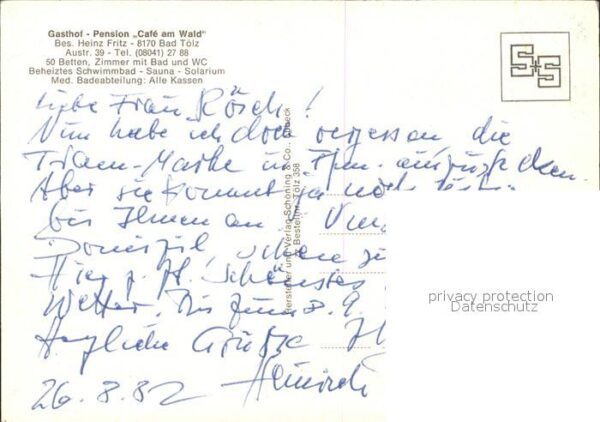 Gasthof - Pension „Café am Wald"
Bes. Heinz Fritz - 8170 Bad Tölz
Austr. 39 - Tel. (08041) 27 88
50 Betten, Zimmer mit Bad und WC
Beheiztes Schwimmbad - Sauna - Solarium
Med. Badeabteilung: Alle Kassen
S+S
Liebe Frau Rösch!
Nun habe ich doch vergessen, die
Marke
Aber sie kommt ja noch
bei Ihnen an.
Domizil, schöne
Hier z. Zt. schönstes
Wetter. Bis zum 8. 9.
Herzliche Grüße
26.8.82 Heinrich
Hersteller und Verlag Schöning & Co., Lübeck
Bestellnr. Tölz 358
privacy protection
Datenschutz